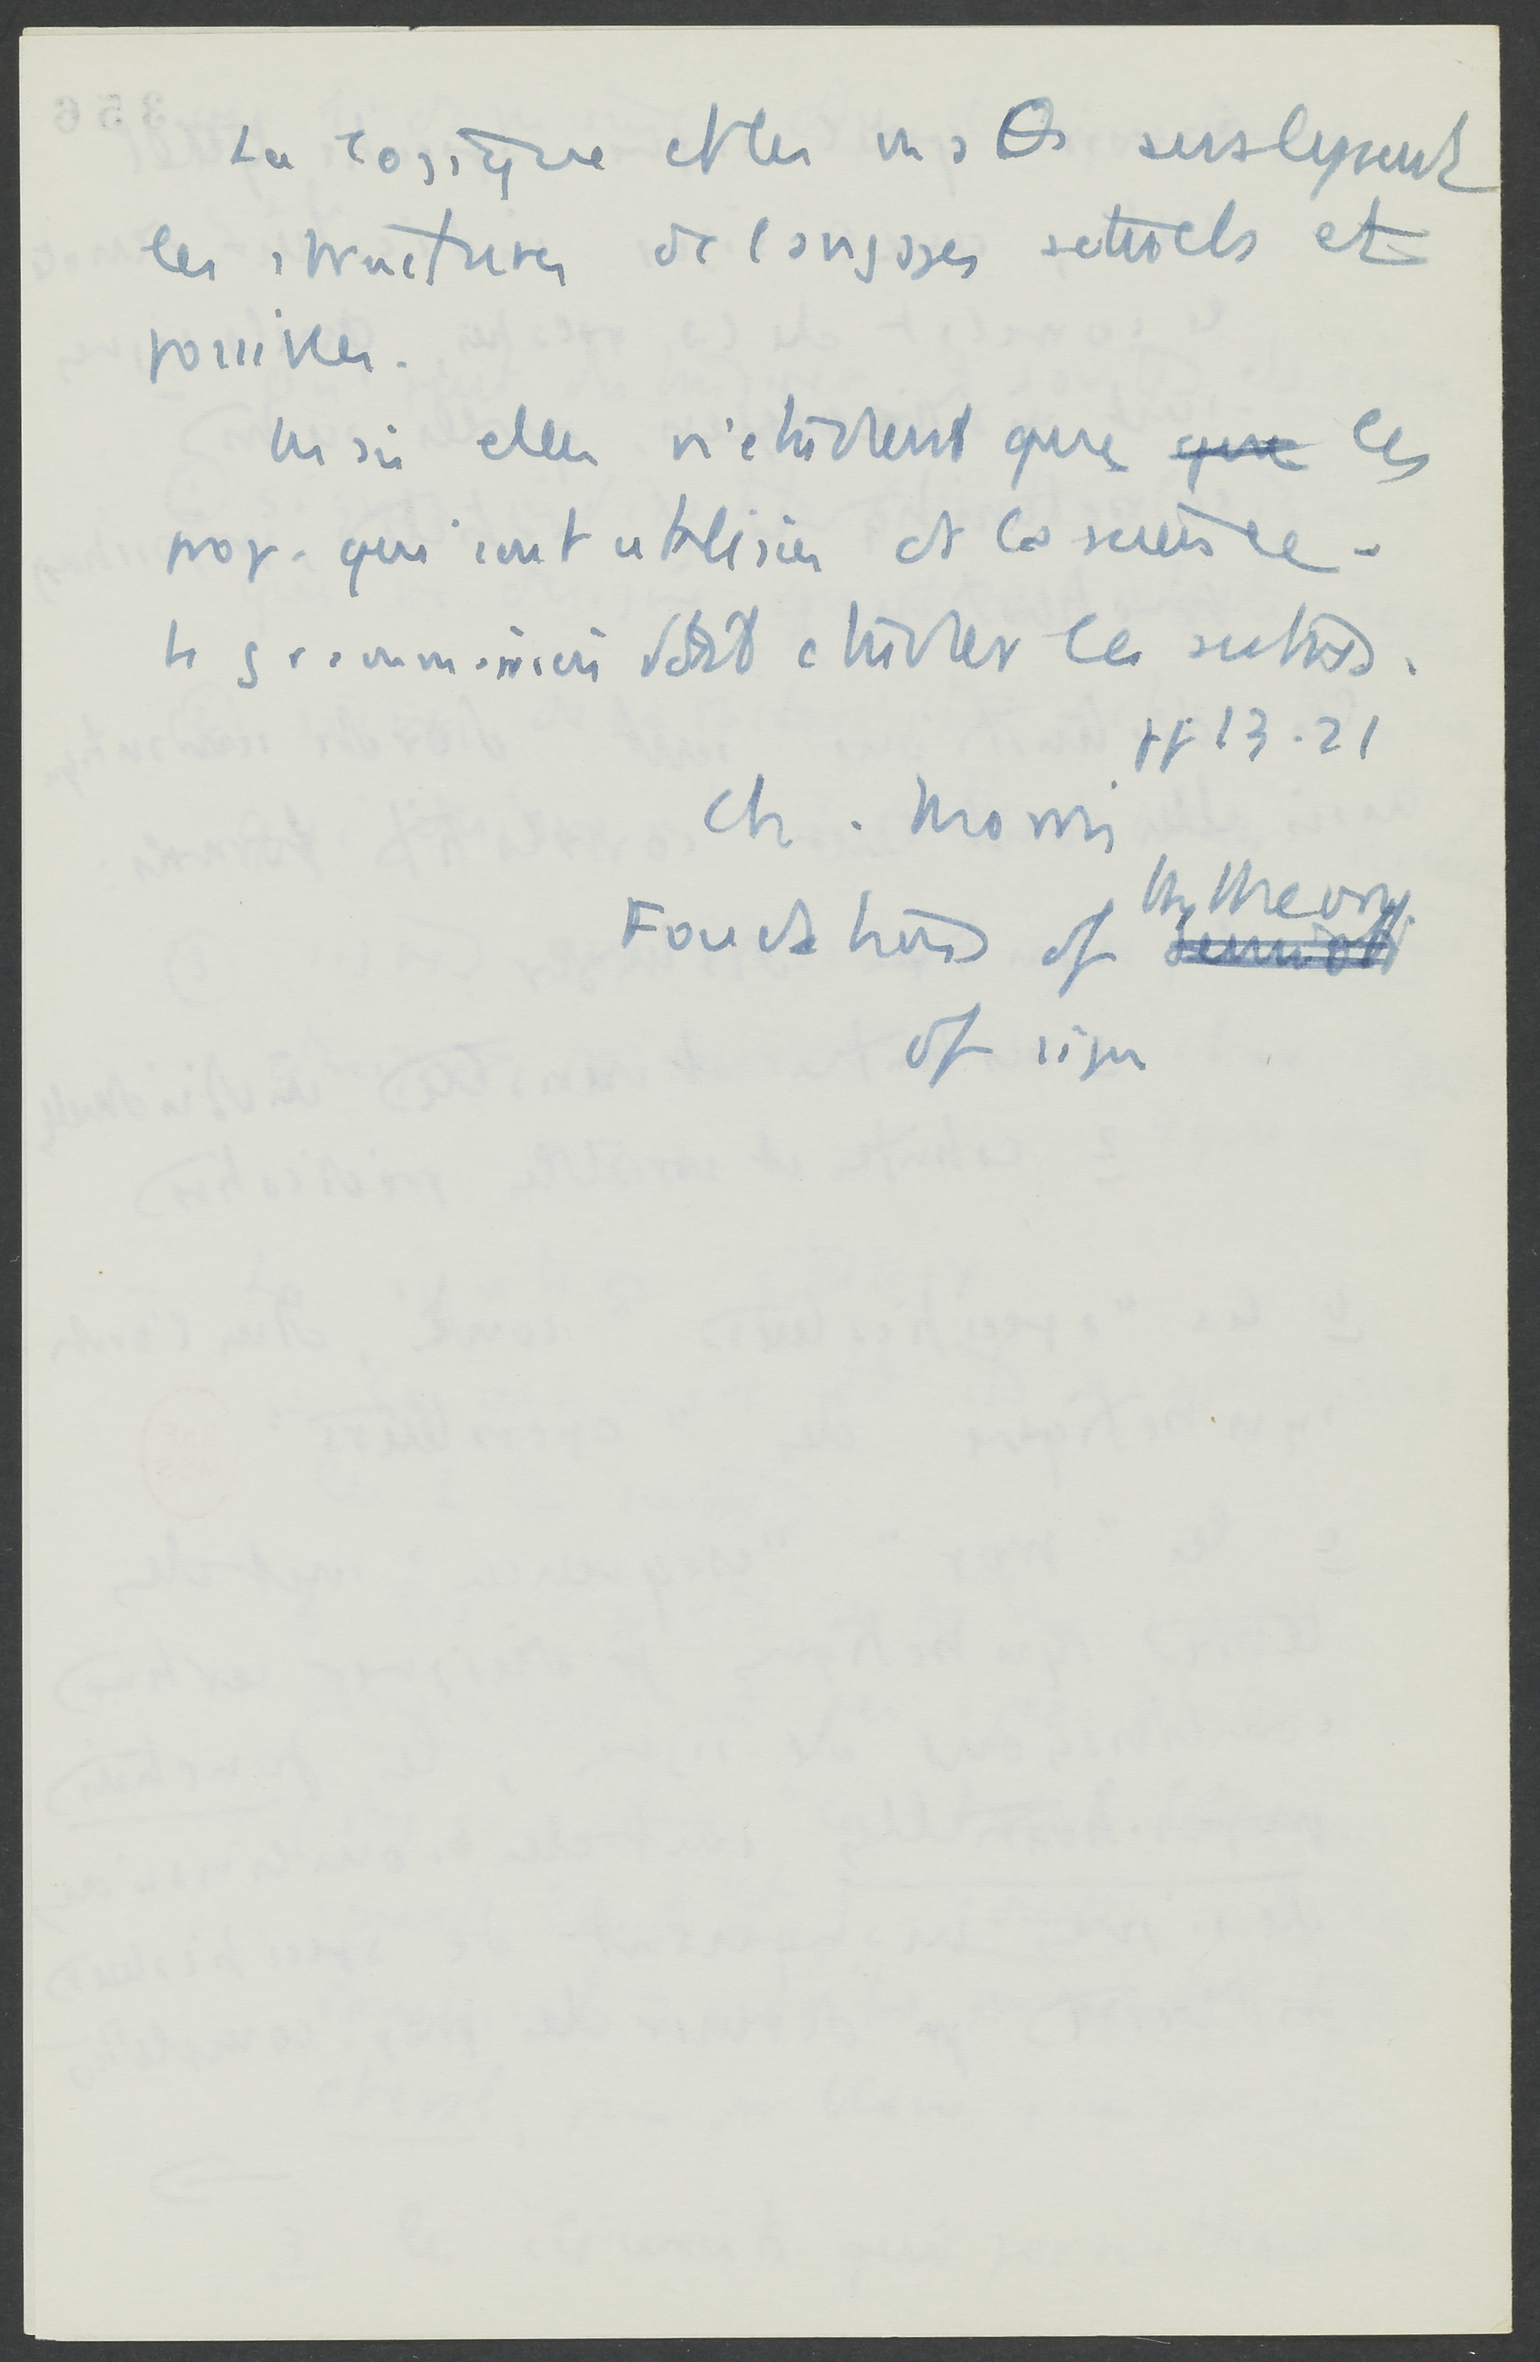 La logique et les maths analysent
les structures de langages actuels et
possibles.
Mais elles n'étudient que que les
prop. qui sont utilisées ds la science.
le grammairien doit étudier les autres.
pp 13-21
Ch. Morris
Foundations of the theory
of sign